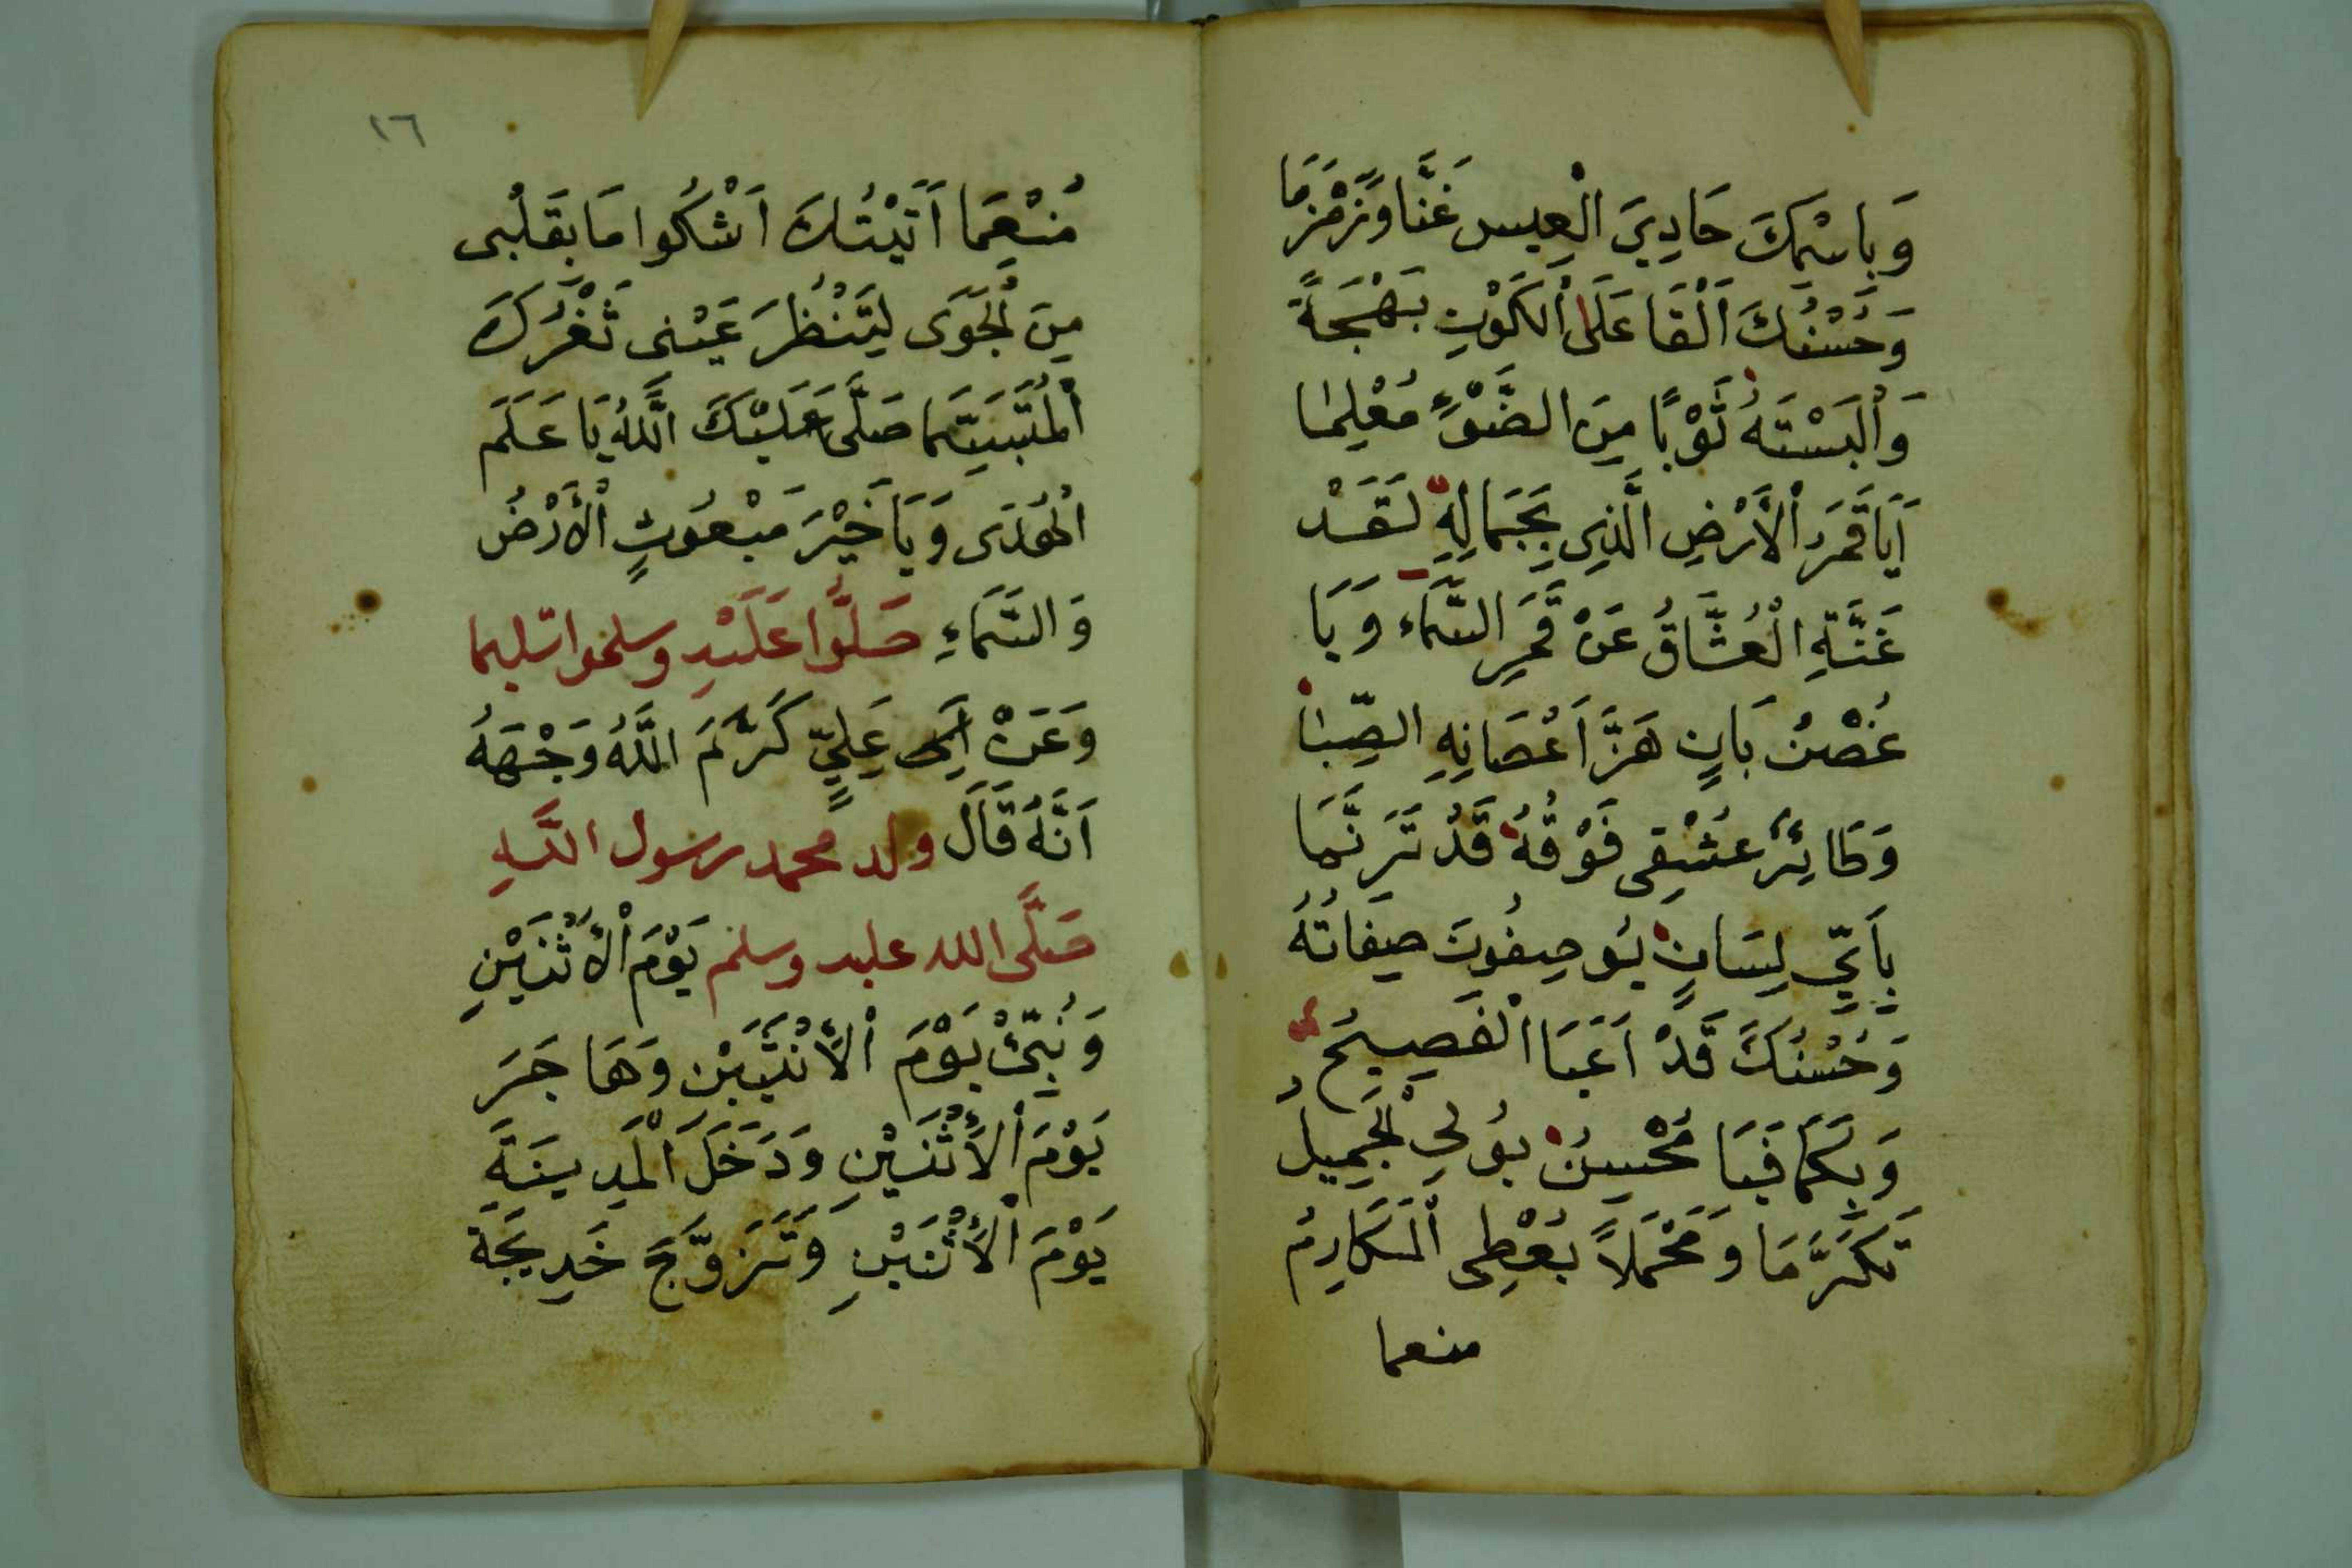 وَبِاسْمِكَ حَادِيَ الْعِيسِ غَنَّا وَزَمْزَمَا
وَحُسْنُكَ اَلْقَا عَلَى الْكَوْنِ بَهْجَةً
وَاَلْبَسْتَهُ ثَوْبًا مِنَ الضَّوْءِ مُعْلِمَا
اَيَا قَمَرَ الْاَرْضِ الَّذِي بِجَمَالِهِ لَقَدْ
غَنَّةِ الْعُشَّاقُ عَنْ قَمَرِ السَّمَاء وَيَا
غُصْنُ بَانٍ هَزَّ اَغْصَانِهِ الصِّبَا
وَطَائِرُ عِشْقِى فَوْقُهُ قَدْ تَرَنَّمَا
بِاَيِّ لِسَانٍ يُوصِفُونَ صِفَاتُهُ
وَحُسْنُكَ قَدْ اَعَيَا الْفَصِيحُ
وَبِكَمَا فَيَا مُحْسِنُ يُولِي الْجَمِيلُ
تَكَرَّمَا وَمُجْمَلاً يُعْطِى الْمَكَارِمُ
منعما
١٦
مُنْعِمَا اَتَيْتُكَ اَشْكُوا مَا بِقَلْبِى
مِنَ الْجَوَى لِتَنْظُرَ عَيْنِى ثَغْرُكَ
الْمُتَبَسِّمَا صَلَّى عَلَيْكَ اللهُ يَا عَلَمَ
الْهُدَى وَيَا خَيْرَ مَبْعُوثٍ الْاَرْضُ
وَالسَّمَاءِ صَلُّوا عَلَيْهِ وسلموا تسليما
وَعَنْ اَبِى عَلِيٍّ كَرَّمَ اللهُ وَجْهَهُ
اَنَّهُ قَالَ ولد محمد رسول اللهِ
صَلَّى الله عليه وسلم يَوْمَ الْاَثْنَيْنِ
وَنُبِّئْ يَوْمَ الْاَثْنَيْنِ وَهَاجَرَ
يَوْمَ الْاَثْنَيْنِ وَدَخَلَ الْمَدِينَةَ
يَوْمَ الْاَثْنَيْنِ وَتَزَوَّجَ خَدِيجَةَ